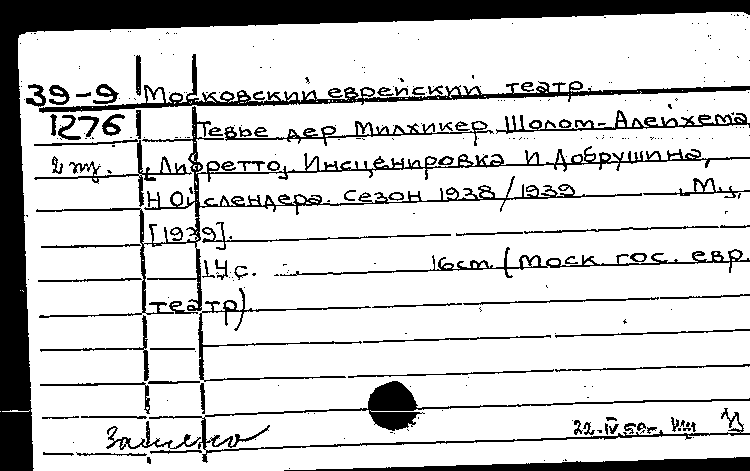 39-9 Московский еврейский театр.
1276 Тевье дер Милхикер Шолом-Алейхема
[Либретто]. Инсценировка И. Добрушина,
Н Ойслендера. Сезон 1938/1939 М.,
[1939].
14 с. 16см. (Моск. гос. евр.
театр).
22.IV.59г.